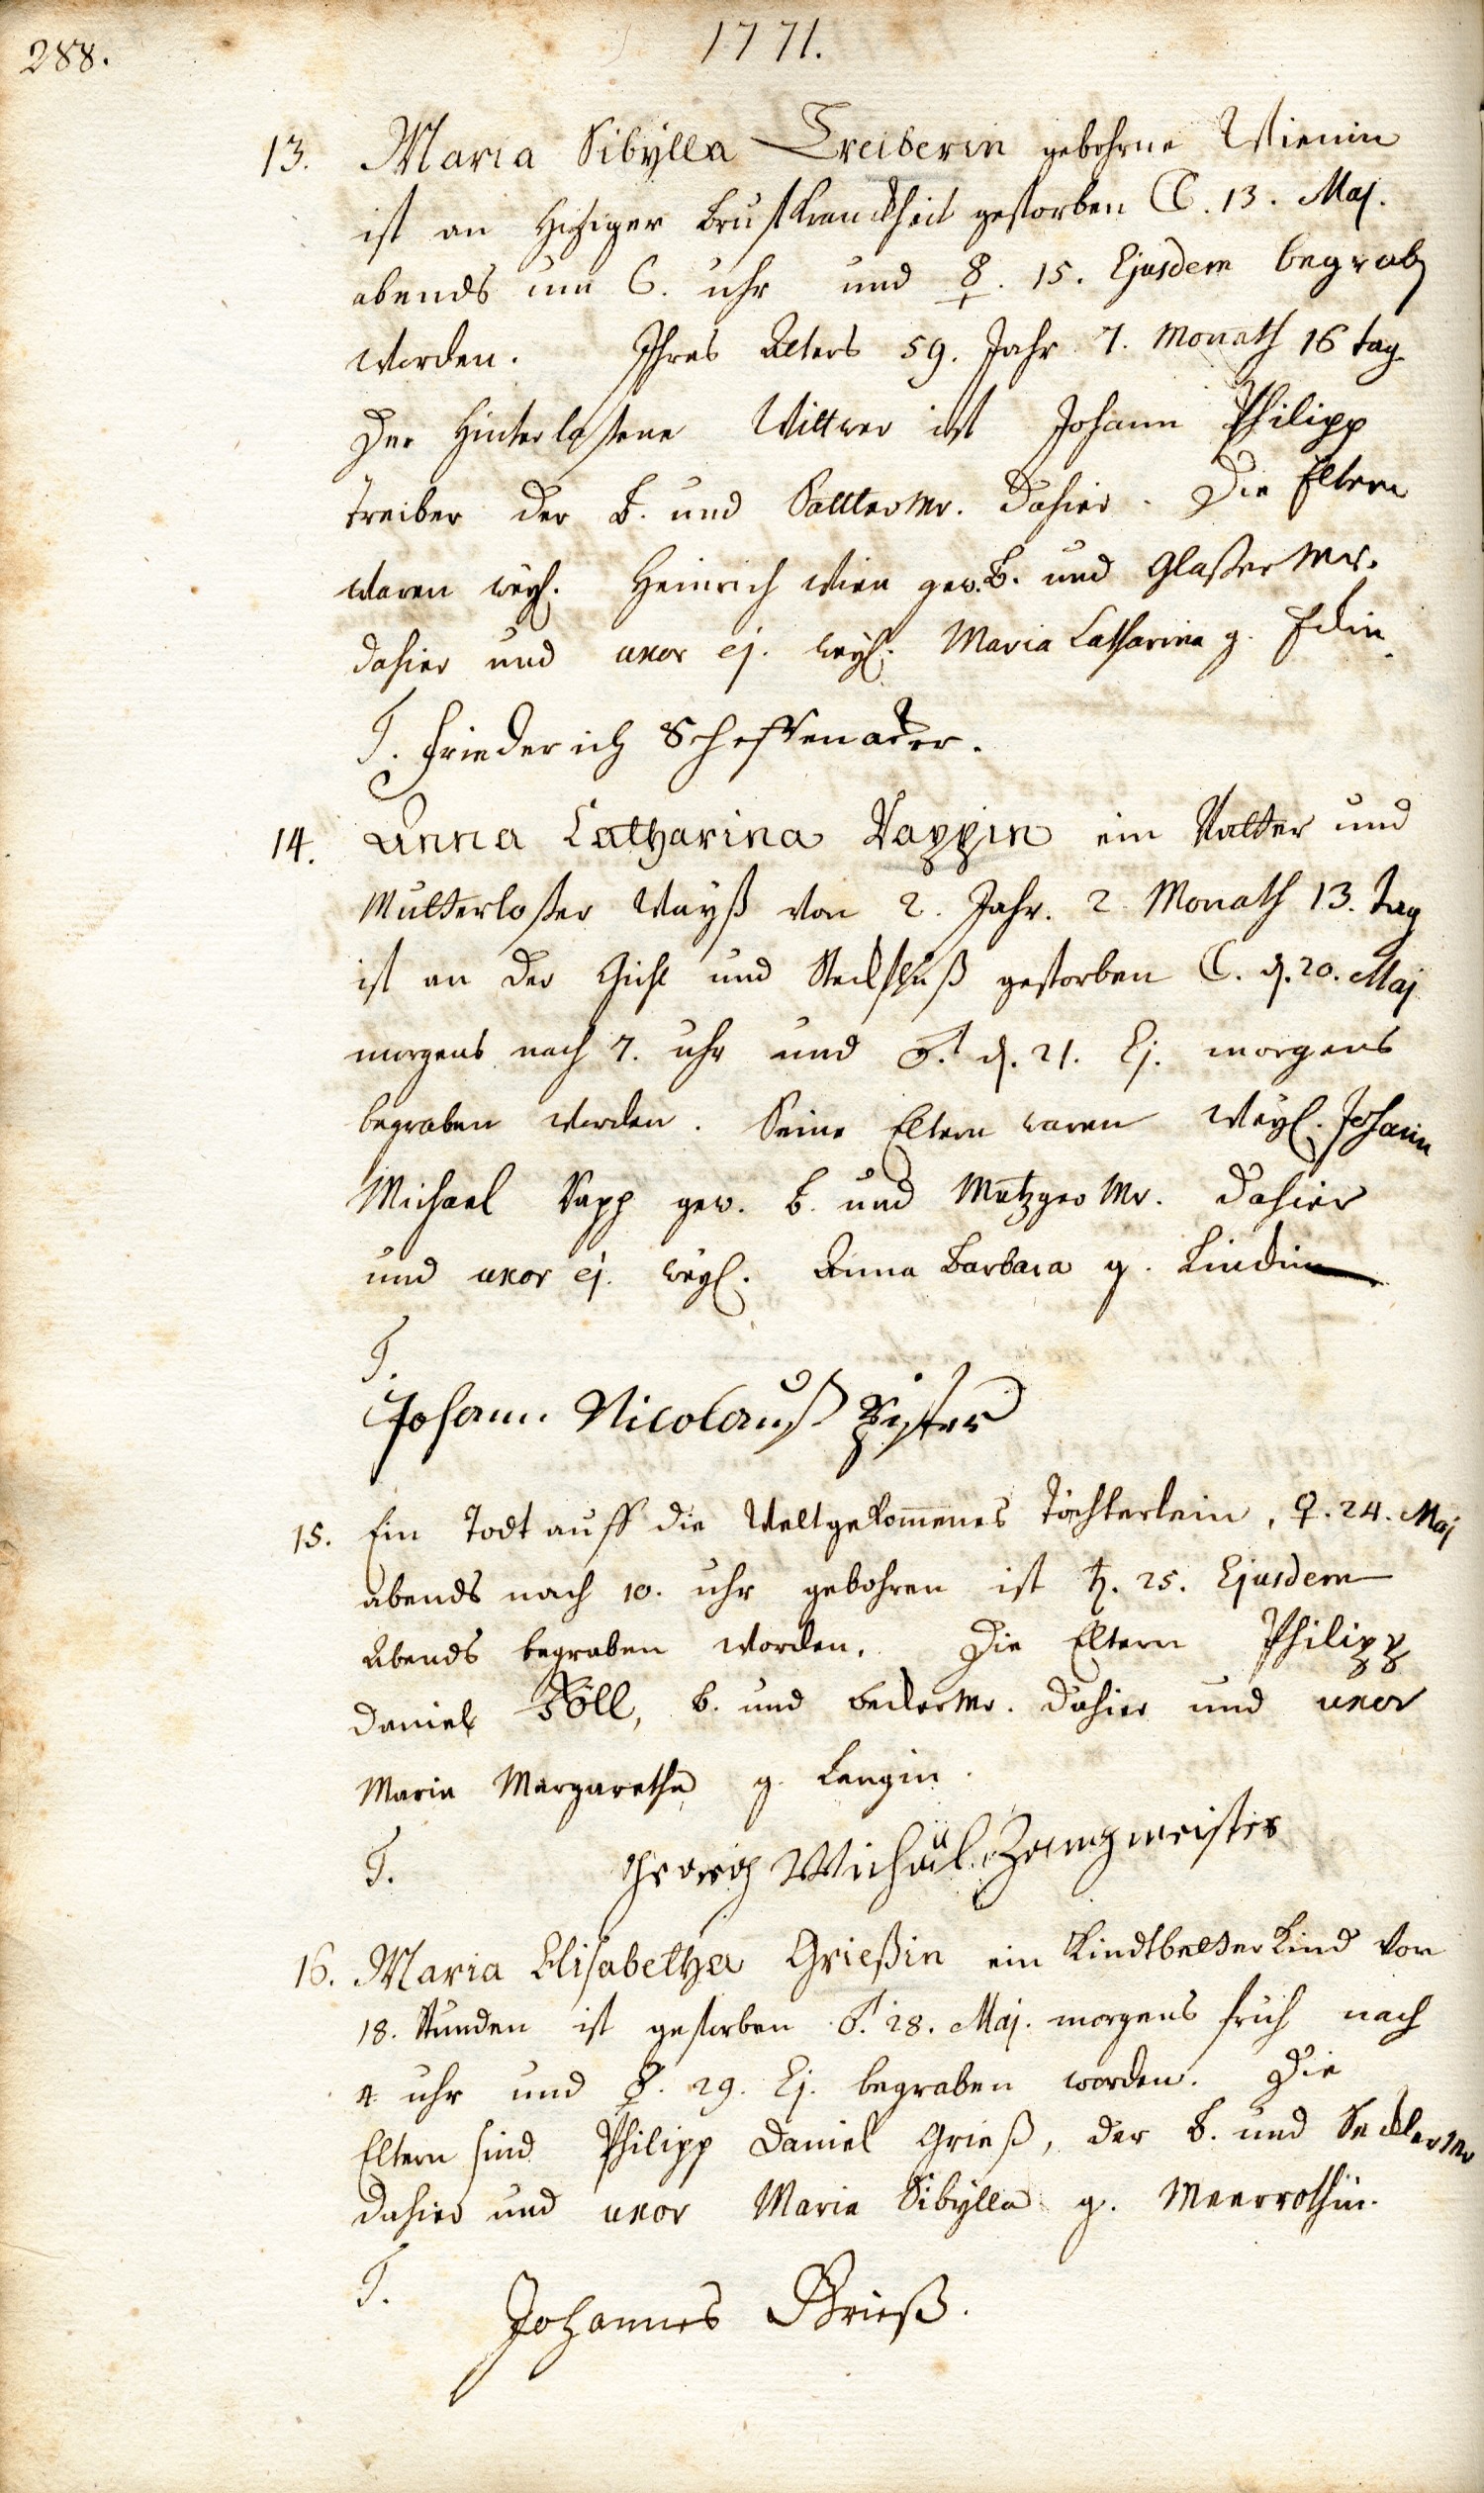 288.
1771.
13. Maria Sibÿlla Treiberin gebohrne Wienin
ist an hitziger Brustkranckheit gestorben ☾. 13. Maj.
abends um 6. uhr und ☿. 15. Ejusdem begrab
worden. Ihres Alters 59. Jahr 7. Monath 16 tag
Der hinterlaßene Wittwer ist Johann Philipp
Treiber der B. und Sattler Mr. dahier. Die Eltern
waren weÿl. Heinrich Wien gew. B. und Glaßer Mr.
dahier und uxor ej. weÿl. Maria Catharina g.
T. Friederich Scheffenacker.
14. Anna Catharina Vappin ein Vatter und
Mutterloßer Waÿß von 2. Jahr. 2 Monath 13. tag
ist an der Gicht und Steckfluß gestorben ☾. d. 20. Maj
morgens nach 7. uhr und ♂. d. 21. Ej. morgens
begraben worden. Seine Eltern waren Weÿl. Johann
Michael Vapp gew. B. und Metzger Mr. dahier
und uxor ej. weÿl. Anna Barbara g. Lindin
T.
Johann Nicolauß
15. Ein Todt auff die Welt gekom̄enes Töchterlein, ♀. 24. Maj
abends nach 10. uhr gebohren ist ♄. 25. Ejusdem
Abends begraben worden. Die Eltern Philipp
Daniel Böll, B. und Becker Mr. dahier und uxor
Maria Margaretha g. Langin.
T. Georg Michäel Zangmeister
16. Maria Elisabetha Grießin ein Kindtbetter Kind von
18. Stunden ist gestorben ♂. 28. Maj. morgens früh nach
4 uhr und ☿. 29. Ej. begraben worden. Die
Eltern sind Philipp Daniel Grieß, der B. und Seckler Mr
dahier und uxor Maria Sibÿlla g. Meerrothin.
T.
Johannes Grieß.